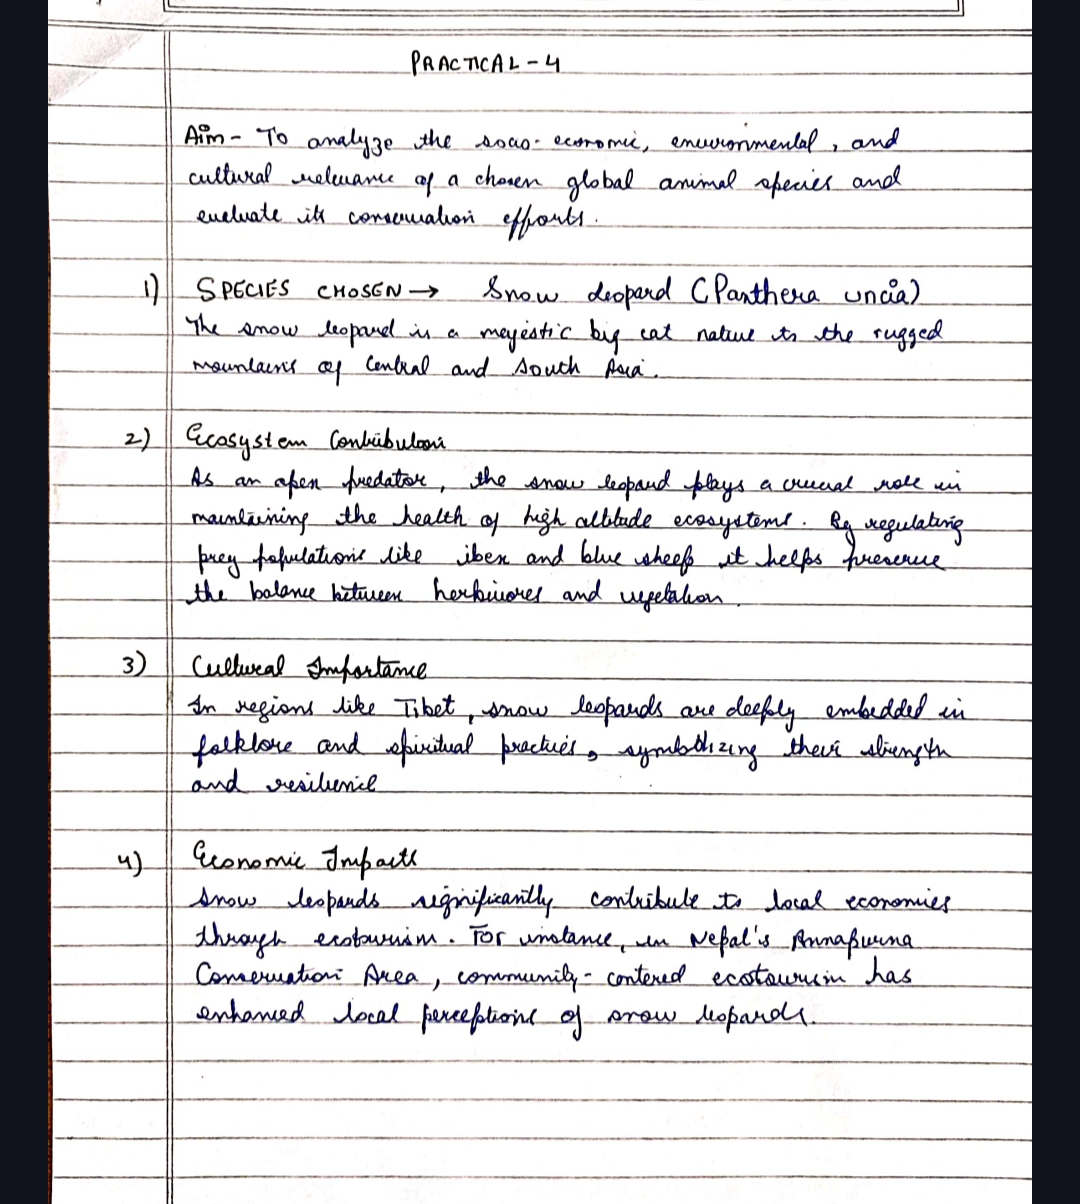 PRACTICAL - 4
Aim - To analyze the socio-economic, environmental, and
cultural relevance of a chosen global animal species and
evaluate its conservation efforts.
1) SPECIES CHOSEN → Snow Leopard (Panthera uncia)
The snow leopard is a majestic big cat native to the rugged
mountains of Central and South Asia.
2) Ecosystem Contribution
As an apex predator, the snow leopard plays a crucial role in
maintaining the health of high altitude ecosystems. By regulating
prey populations like ibex and blue sheep it helps preserve
the balance between herbivores and vegetation.
3) Cultural Importance
In regions like Tibet, snow leopards are deeply embedded in
folklore and spiritual practices, symbolizing their strength
and resilience
4) Economic Impacts
Snow leopards significantly contribute to local economies
through ecotourism. For instance, in Nepal's Annapurna
Conservation Area, community-centered ecotourism has
enhanced local perceptions of snow leopards.